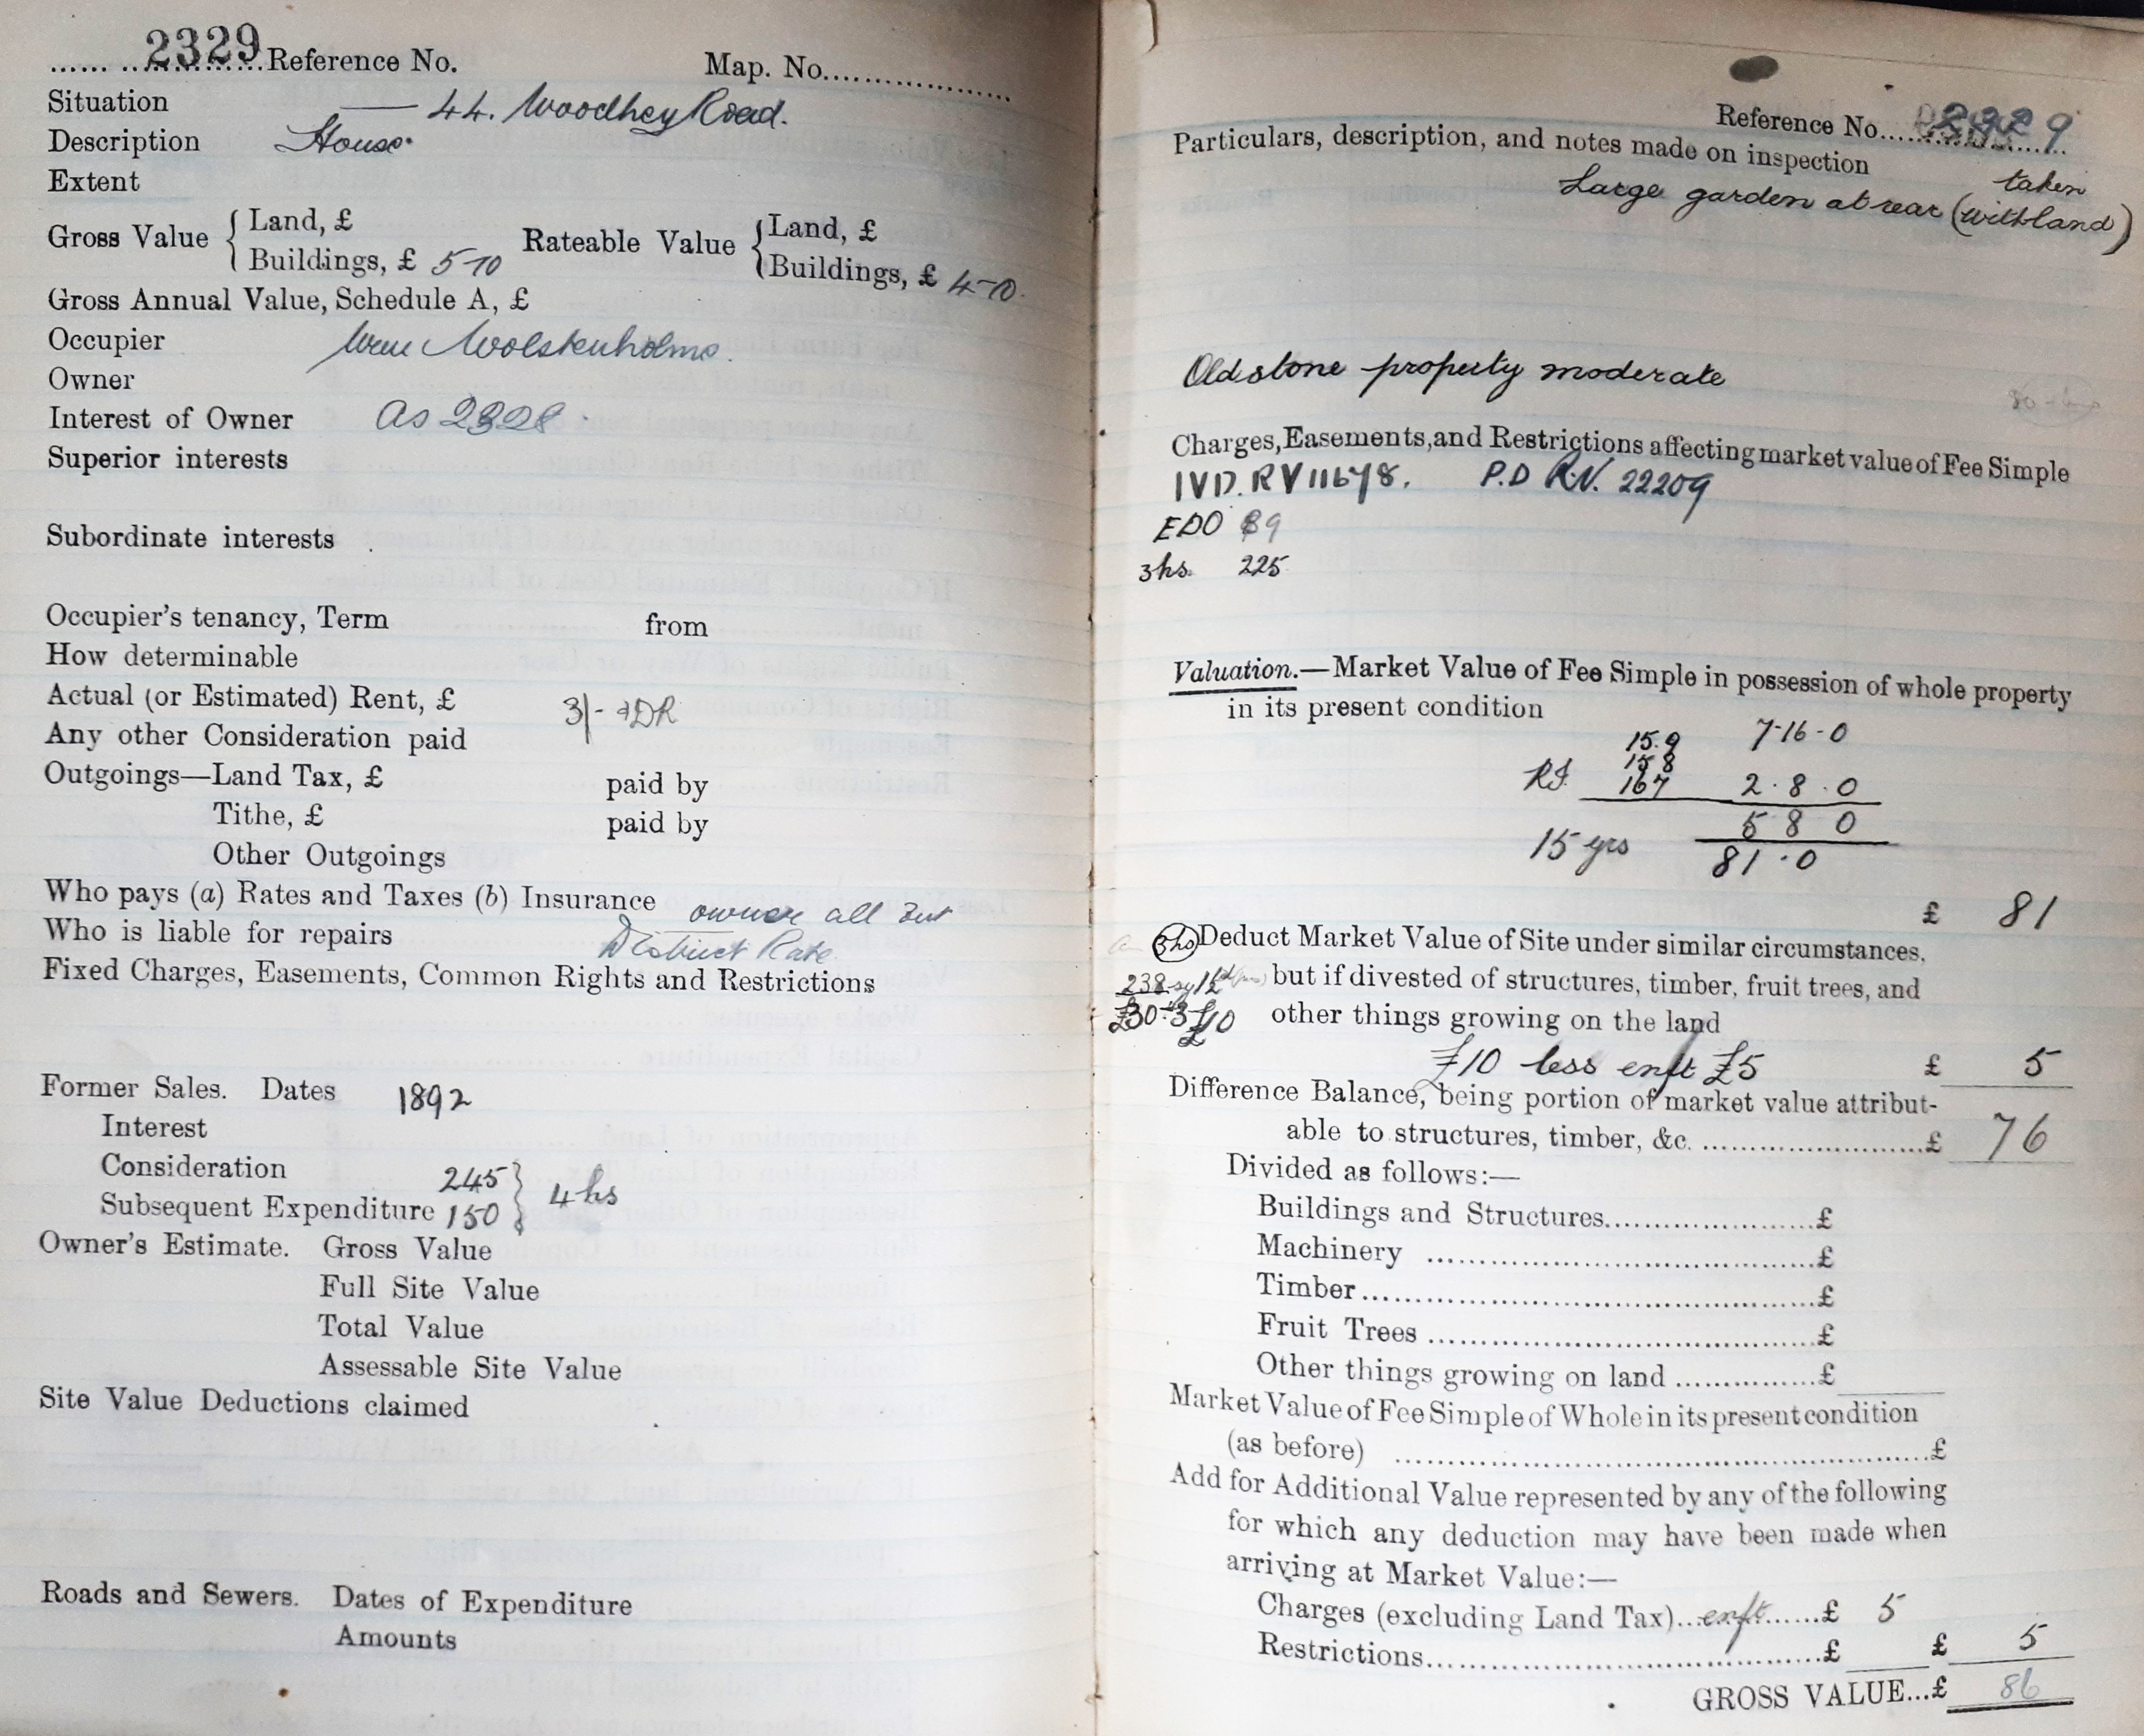 2329 Reference No. Map. No.
Situation — 44. Woodhey Road.
Description House.
Extent
Gross Value { Land, £ Rateable Value { Land, £
Buildings, £ 5-10 Buildings, £ 4-10.
Gross Annual Value, Schedule A, £
Occupier Wm Wolstenholme.
Owner
Interest of Owner As 2328
Superior interests
Subordinate interests
Occupier's tenancy, Term from
How determinable
Actual (or Estimated) Rent, £ 3/- + DR
Any other Consideration paid
Outgoings—Land Tax, £ paid by
Tithe, £ paid by
Other Outgoings
Who pays (a) Rates and Taxes (b) Insurance owner all but
Who is liable for repairs District Rate
Fixed Charges, Easements, Common Rights and Restrictions
Former Sales. Dates 1892
Interest
Consideration 245 } 4 hs
Subsequent Expenditure 150
Owner's Estimate. Gross Value
Full Site Value
Total Value
Assessable Site Value
Site Value Deductions claimed
Roads and Sewers. Dates of Expenditure
Amounts
Reference No. 2329
Particulars, description, and notes made on inspection
taken
Large garden at rear (with land)
Old stone property moderate
Charges, Easements, and Restrictions affecting market value of Fee Simple
IVD. RV 11678. P.D R.V. 22209
EDO 89
3hs. 225
Valuation.—Market Value of Fee Simple in possession of whole property
in its present condition
15.9 7-16-0
158
167 2.8.0
5 8 0
15 yrs 81.0
£ 81
3hs Deduct Market Value of Site under similar circumstances,
238 but if divested of structures, timber, fruit trees, and
£30÷3 £10 other things growing on the land
£10 less enft £5 £ 5
Difference Balance, being portion of market value attribut-
able to structures, timber, &c. £ 76
Divided as follows:—
Buildings and Structures £
Machinery £
Timber £
Fruit Trees £
Other things growing on land £
Market Value of Fee Simple of Whole in its present condition
(as before) £
Add for Additional Value represented by any of the following
for which any deduction may have been made when
arriving at Market Value:—
Charges (excluding Land Tax) enft £ 5
Restrictions £ £ 5
GROSS VALUE...£ 86